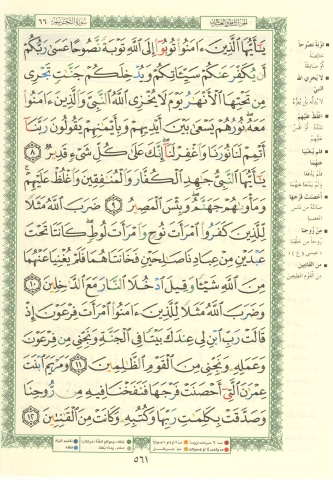 الجزء الثامن والعشرون
سورة التحريم ٦٦
يَٰٓأَيُّهَا ٱلَّذِينَ ءَامَنُوا۟ تُوبُوٓا۟ إِلَى ٱللَّهِ تَوْبَةً نَّصُوحًا عَسَىٰ رَبُّكُمْ
أَن يُكَفِّرَ عَنكُمْ سَيِّـَٔاتِكُمْ وَيُدْخِلَكُمْ جَنَّٰتٍ تَجْرِى
مِن تَحْتِهَا ٱلْأَنْهَٰرُ يَوْمَ لَا يُخْزِى ٱللَّهُ ٱلنَّبِىَّ وَٱلَّذِينَ ءَامَنُوا۟
مَعَهُۥ نُورُهُمْ يَسْعَىٰ بَيْنَ أَيْدِيهِمْ وَبِأَيْمَٰنِهِمْ يَقُولُونَ رَبَّنَآ
أَتْمِمْ لَنَا نُورَنَا وَٱغْفِرْ لَنَآ إِنَّكَ عَلَىٰ كُلِّ شَىْءٍ قَدِيرٌ ٨
يَٰٓأَيُّهَا ٱلنَّبِىُّ جَٰهِدِ ٱلْكُفَّارَ وَٱلْمُنَٰفِقِينَ وَٱغْلُظْ عَلَيْهِمْ
وَمَأْوَىٰهُمْ جَهَنَّمُ وَبِئْسَ ٱلْمَصِيرُ ٩ ضَرَبَ ٱللَّهُ مَثَلًا
لِّلَّذِينَ كَفَرُوا۟ ٱمْرَأَتَ نُوحٍ وَٱمْرَأَتَ لُوطٍ كَانَتَا تَحْتَ
عَبْدَيْنِ مِنْ عِبَادِنَا صَٰلِحَيْنِ فَخَانَتَاهُمَا فَلَمْ يُغْنِيَا عَنْهُمَا
مِنَ ٱللَّهِ شَيْـًٔا وَقِيلَ ٱدْخُلَا ٱلنَّارَ مَعَ ٱلدَّٰخِلِينَ ١٠
وَضَرَبَ ٱللَّهُ مَثَلًا لِّلَّذِينَ ءَامَنُوا۟ ٱمْرَأَتَ فِرْعَوْنَ إِذْ
قَالَتْ رَبِّ ٱبْنِ لِى عِندَكَ بَيْتًا فِى ٱلْجَنَّةِ وَنَجِّنِى مِن فِرْعَوْنَ
وَعَمَلِهِۦ وَنَجِّنِى مِنَ ٱلْقَوْمِ ٱلظَّٰلِمِينَ ١١ وَمَرْيَمَ ٱبْنَتَ
عِمْرَٰنَ ٱلَّتِىٓ أَحْصَنَتْ فَرْجَهَا فَنَفَخْنَا فِيهِ مِن رُّوحِنَا
وَصَدَّقَتْ بِكَلِمَٰتِ رَبِّهَا وَكُتُبِهِۦ وَكَانَتْ مِنَ ٱلْقَٰنِتِينَ ١٢
توبة نصوحا
لا يخزي الله النبي
اغلظ عليهم
فلم يغنيا عنهما
أحصنت فرجها
من روحنا
من القانتين
٥٦١